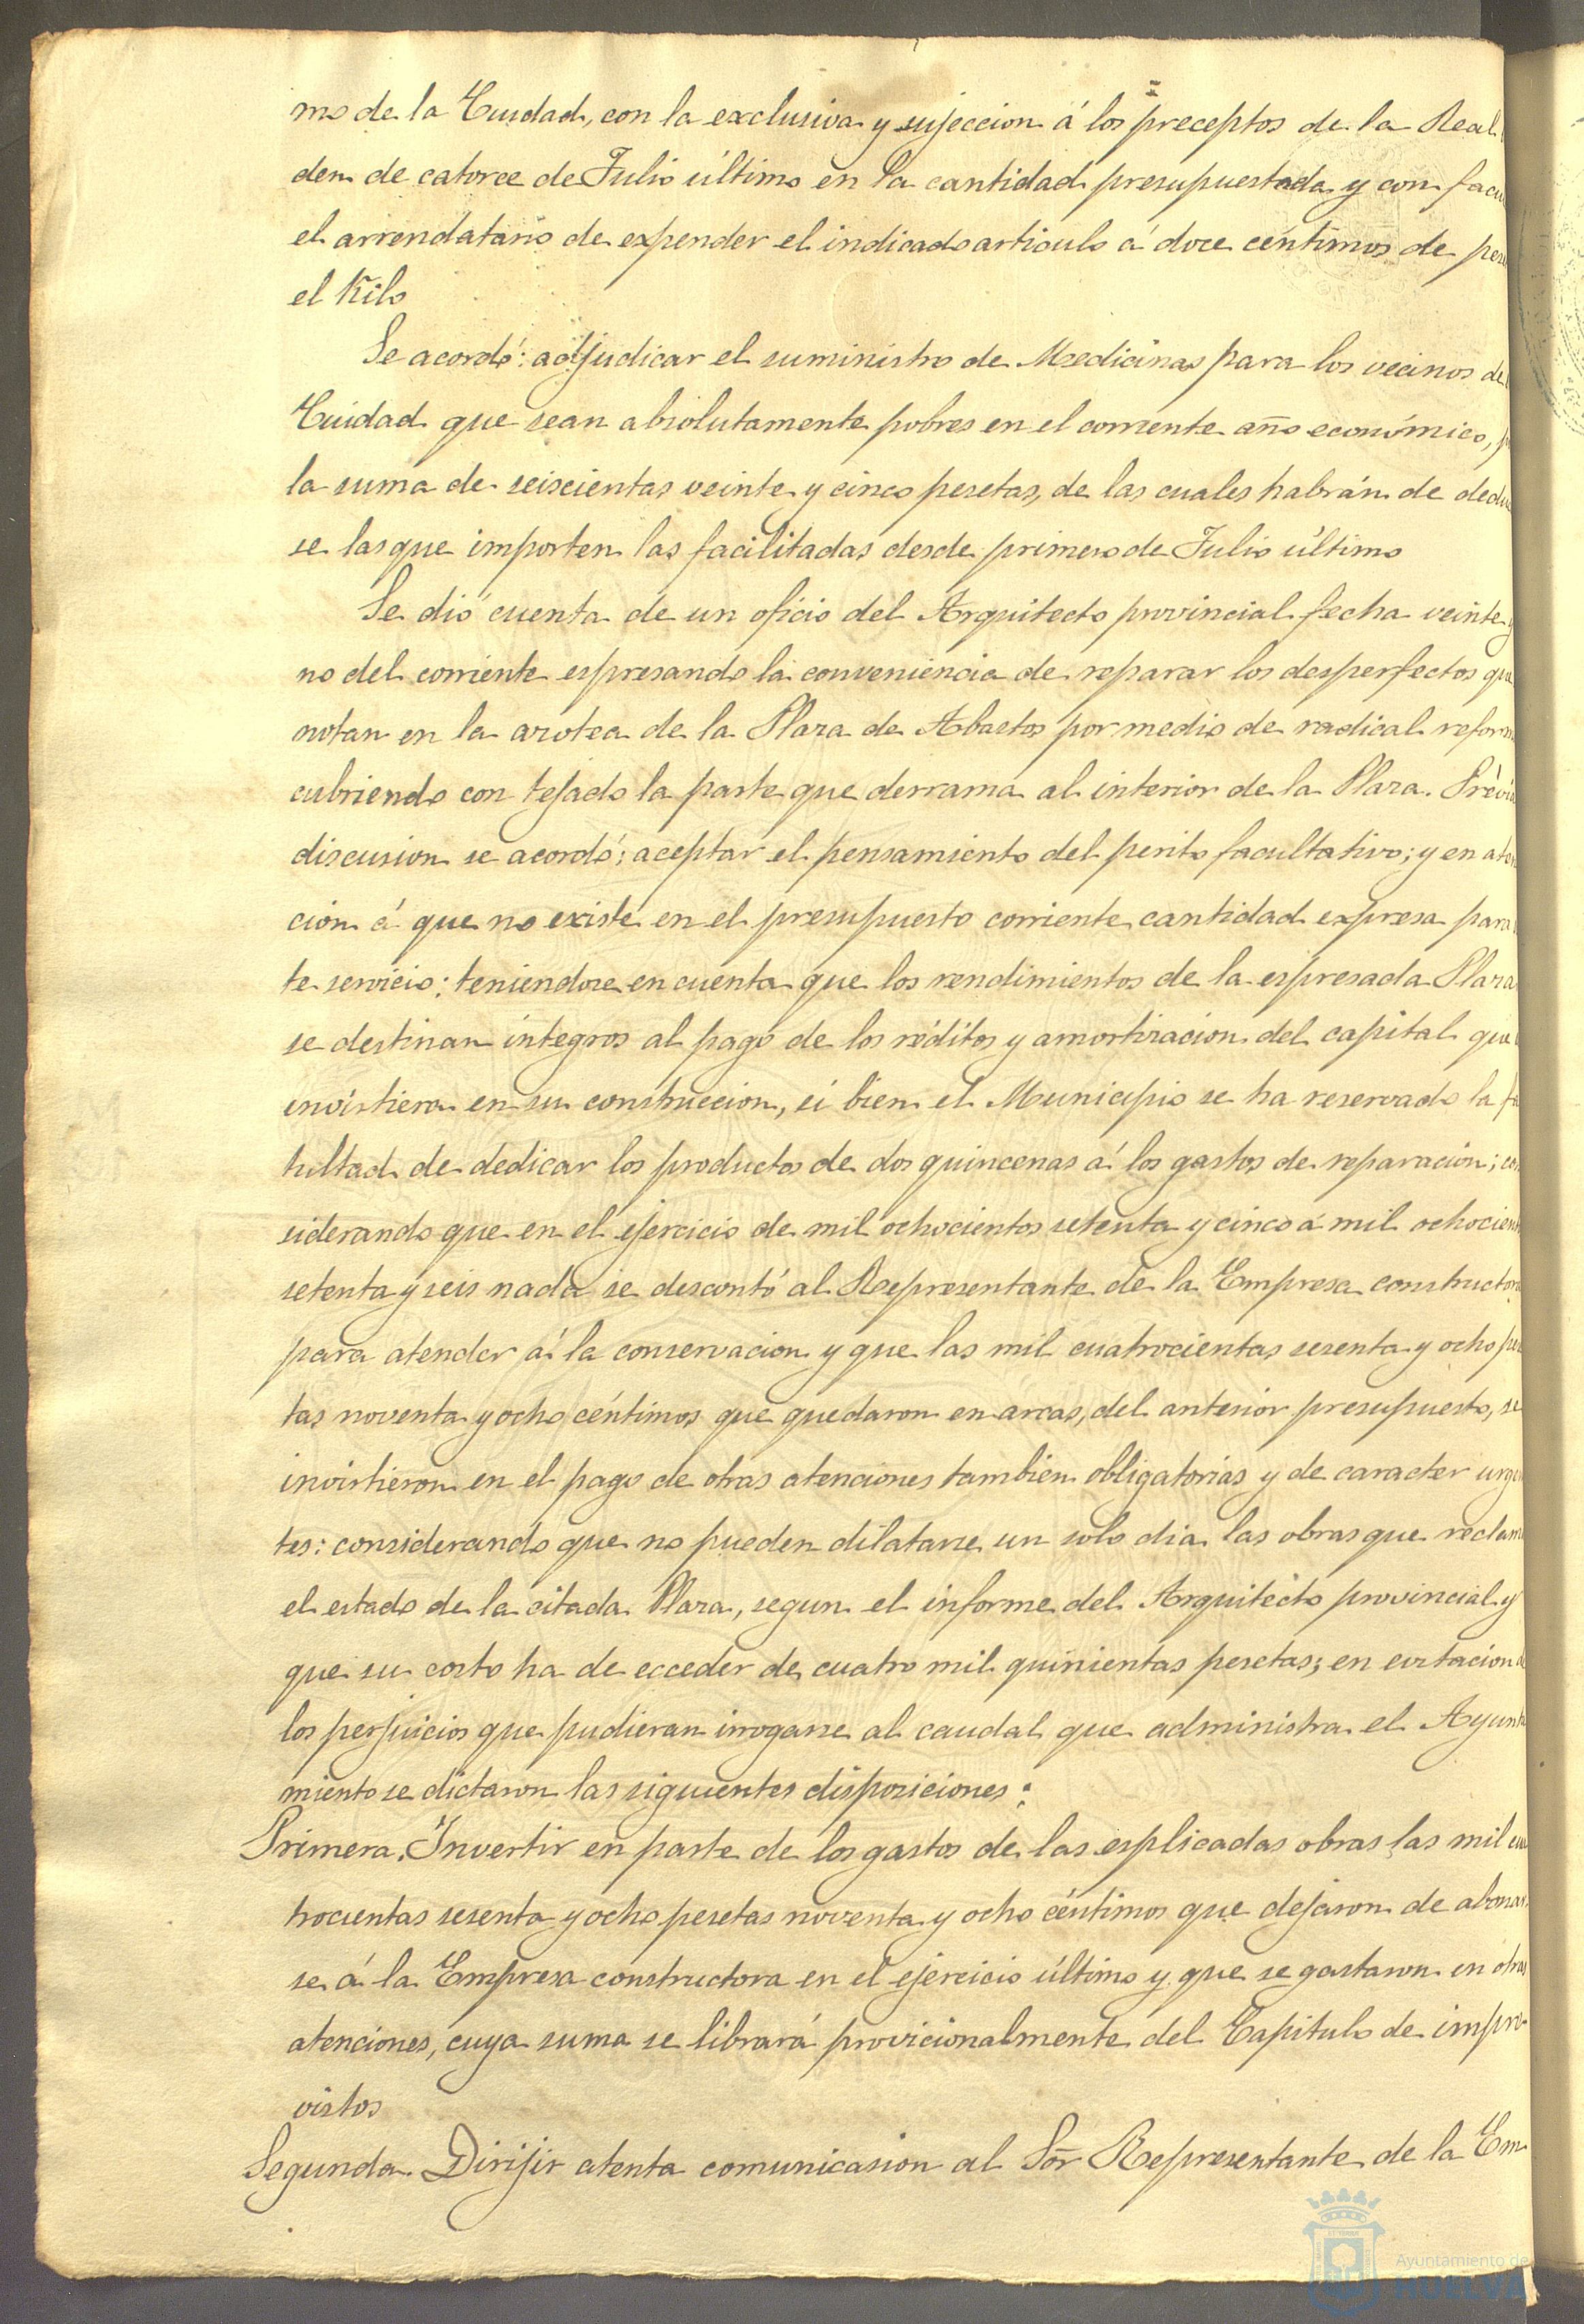 mo de la Ciudad, con la exclusiva y sujeccion á los preceptos de la Real
den de catorce de Julio último en la cantidad presupuestada y con facu
el arrendatario de expender el indicado articulo á doce céntimos de pese
el Kilo
Se acordó: adjudicar el suministro de Medicinas para los vecinos de
Ciudad que sean absolutamente pobres en el corriente año económico, p
la suma de seiscientas veinte y cinco pesetas, de las cuales habrán de dedu
se las que importen las facilitadas desde primero de Julio último
Se dió cuenta de un oficio del Arquitecto provincial fecha veinte y
no del corriente espresando la conveniencia de reparar los desperfectos que
notan en la azotea de la Plaza de Abastos por medio de radical reforma
cubriendo con tejado la parte que derrama al interior de la Plaza. Prévia
discusion se acordó: aceptar el pensamiento del perito facultativo; y en aten
cion á que no existe en el presupuesto corriente cantidad expresa para
te servicio: teniendose en cuenta que los rendimientos de la espresada Plaza
se destinan integros al pago de los réditos y amortizacion del capital que
invirtiera en su construccion, si bien el Municipio se ha reservado la fa
cultad de dedicar los productos de dos quincenas á los gastos de reparacion; con
siderando que en el ejercicio de mil ochocientos setenta y cinco á mil ochocien
setenta y seis nada se descontó al Representante de la Empresa constructora
para atender á la conservacion y que las mil cuatrocientas sesenta y ocho pese
tas noventa y ocho céntimos que quedaron en arcas, del anterior presupuesto, se
invirtieron en el pago de otras atenciones tambien obligatorias y de caracter urgen
tes: considerando que no pueden dilatarse un solo dia las obras que reclama
el estado de la citada Plaza, segun el informe del Arquitecto provincial y
que su costo ha de ecceder de cuatro mil quinientas pesetas; en evitacion de
los perjuicios que pudieran irrogarse al caudal que administra el Ayunta
miento se dictaron las siguientes disposiciones:
Primera. Invertir en parte de los gastos de las esplicadas obras las mil cua
trocientas sesenta y ocho pesetas noventa y ocho céntimos que dejaron de abonar-
se á la Empresa constructora en el ejercicio último y que se gastaron en otras
atenciones, cuya suma se librará provicionalmente del Capitulo de impre-
vistos
Segunda. Dirijir atenta comunicasion al Sor Representante de la Em-
Ayuntamiento de
HUELVA